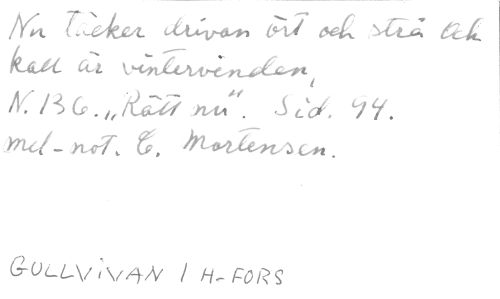 Nu täcker drivan ört och strå och
kall är vintervinden,
N. 136. „Rätt nu". Sid. 94.
mel-not. C. Mortensen.
GULLVIVAN / H-FORS